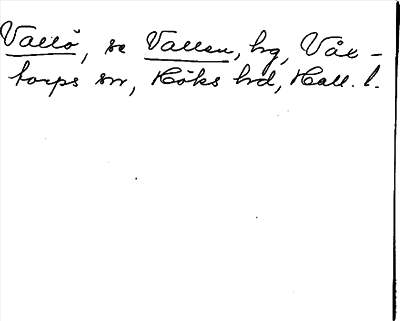 Vallö, se Vallen, hg, Våx-
torps sn, Höks hd, Hall. l.